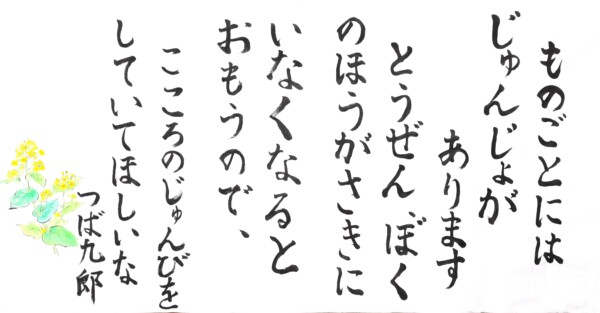 ものごとには
じゅんじょが
あります
とうぜん、ぼく
のほうがさきに
いなくなると
おもうので、
こころのじゅんびを
していてほしいな
つば九郎